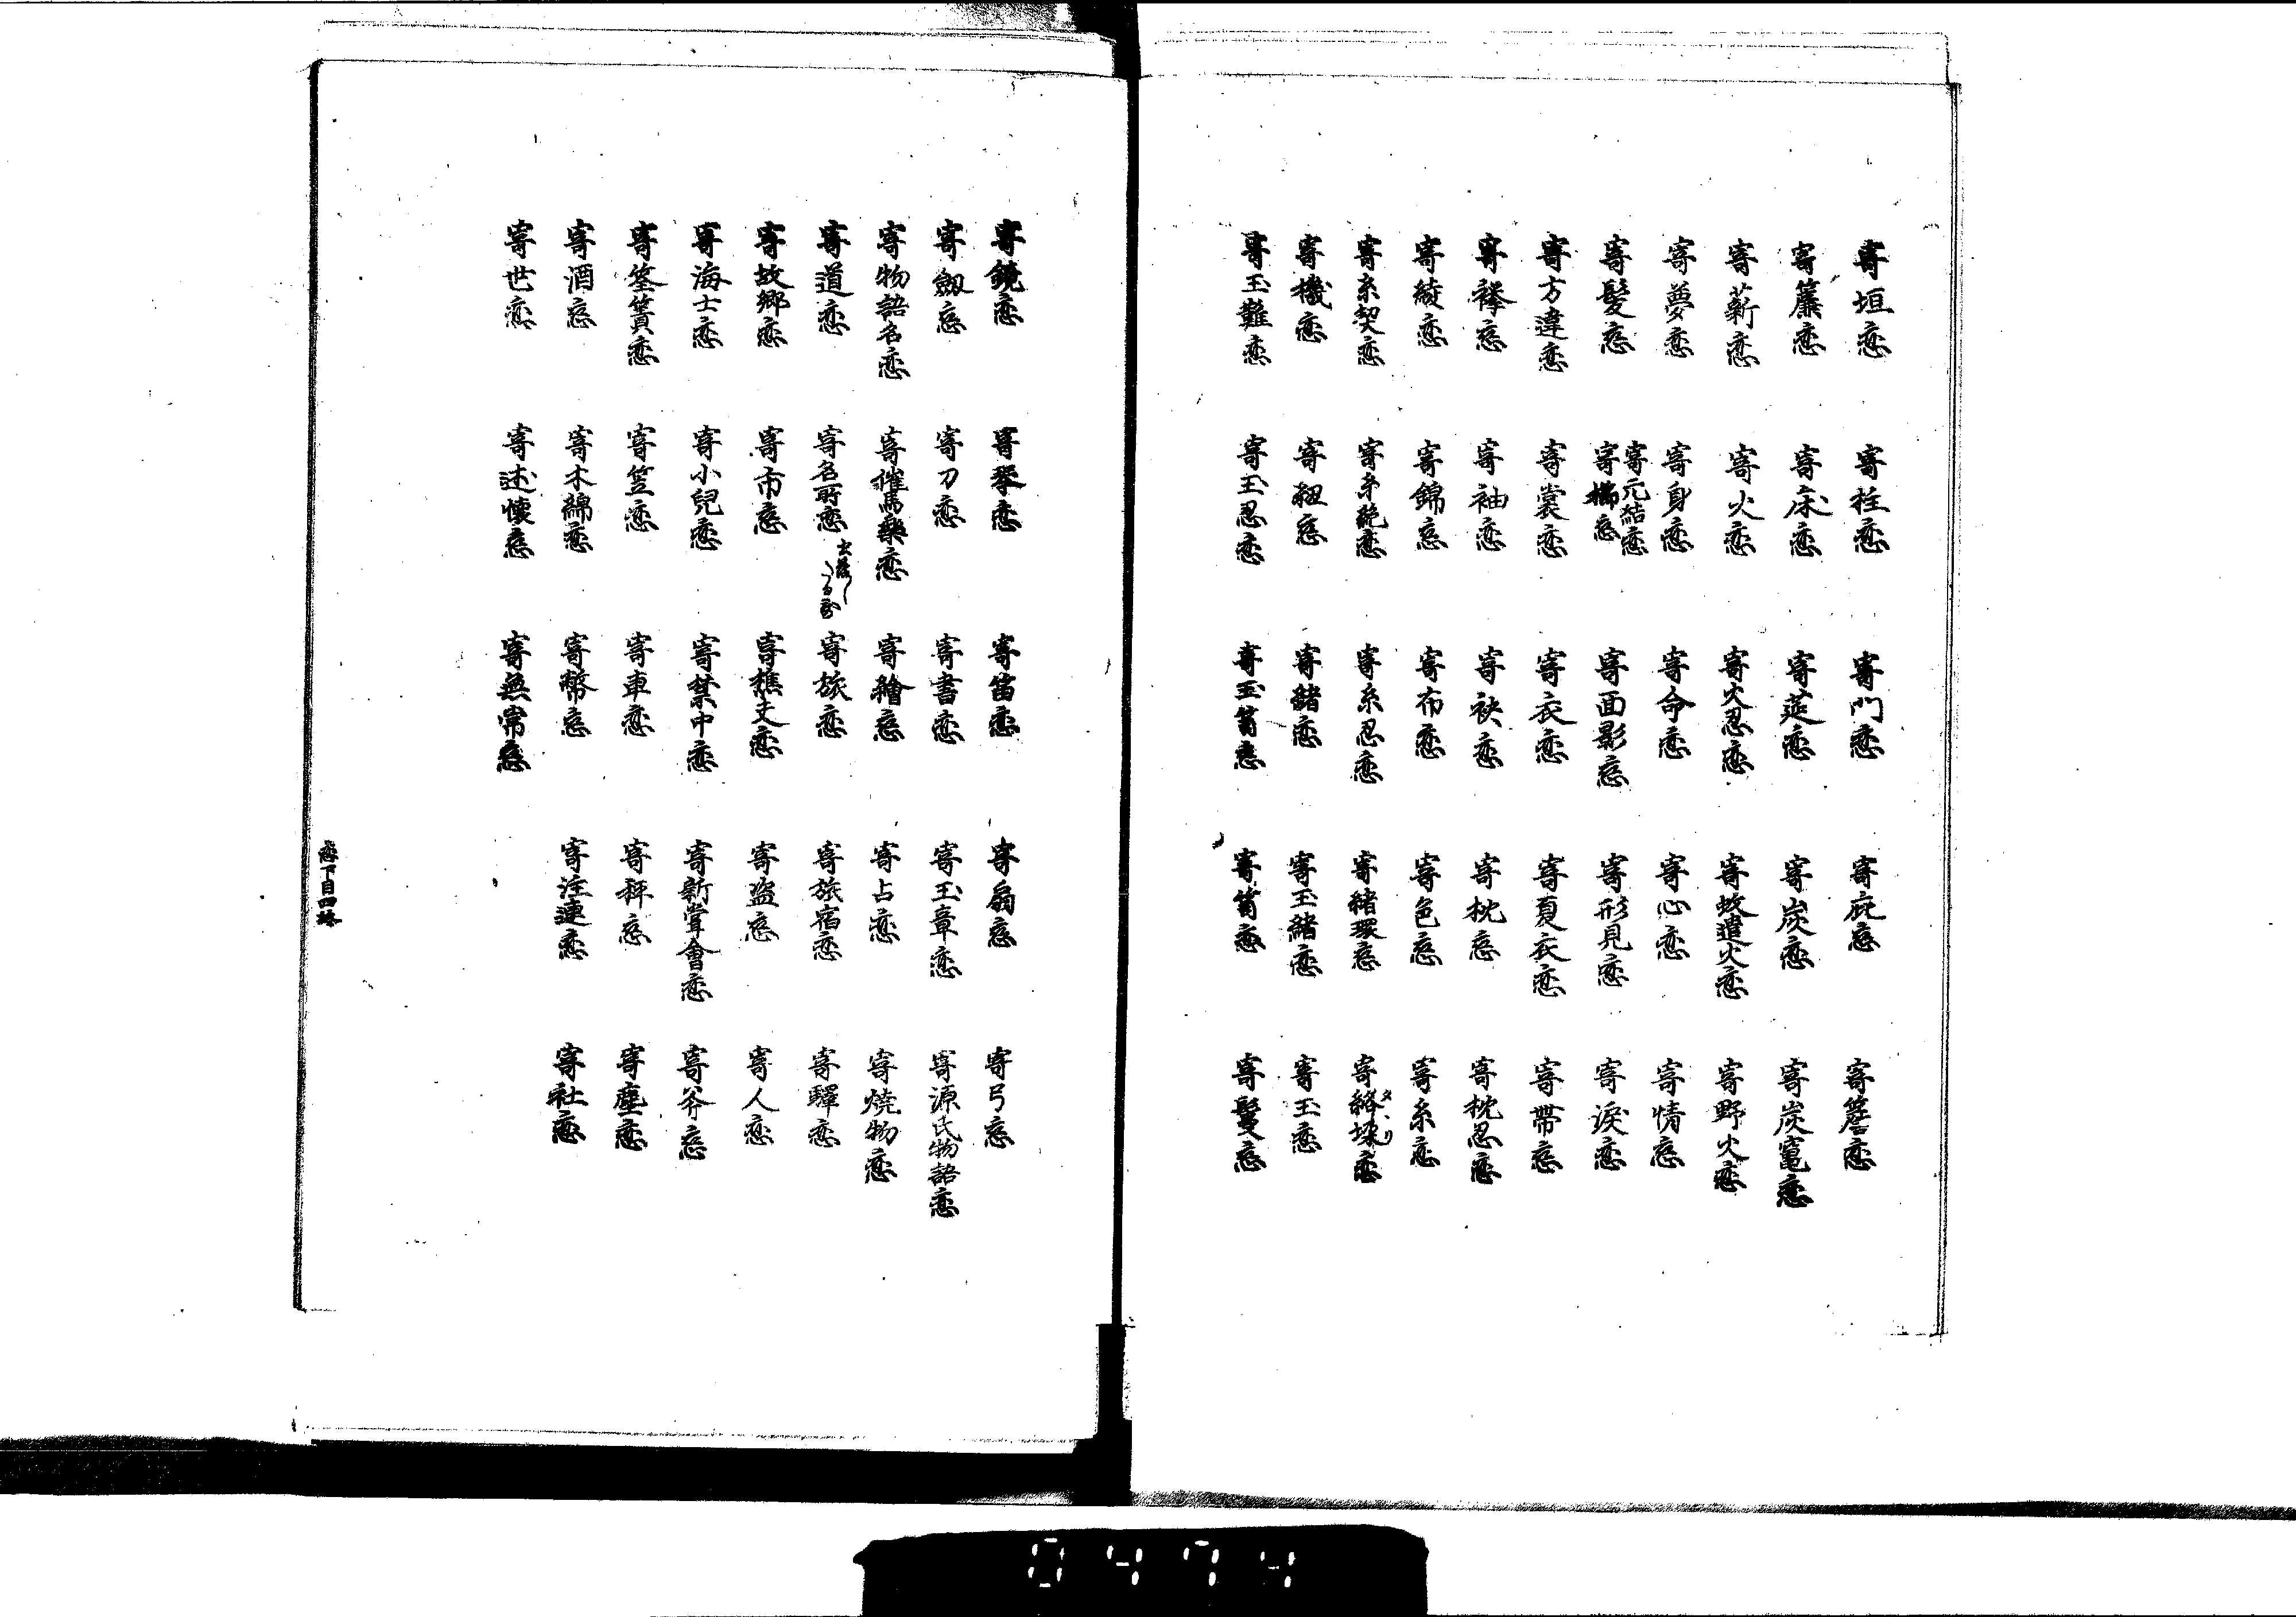 寄垣恋 寄柱恋 寄門恋 寄庇恋 寄簷恋
寄簾恋 寄床恋 寄莚恋 寄炭恋 寄炭竈恋
寄薪恋 寄火恋 寄火忍恋 寄蚊遣火恋 寄野火恋
寄夢恋 寄身恋 寄命恋 寄心恋 寄情恋
寄髪恋 寄元結恋 寄櫛恋 寄面影恋 寄形見恋 寄涙恋
寄方違恋 寄裳恋 寄衣恋 寄夏衣恋 寄帯恋
寄襷恋 寄袖恋 寄袂恋 寄枕恋 寄枕忍恋
寄綾恋 寄錦恋 寄布恋 寄色恋 寄糸恋
寄糸契恋 寄糸絶恋 寄糸忍恋 寄緒環恋 寄絡垜恋
寄機恋 寄紐恋 寄緒恋 寄玉緒恋 寄玉恋
寄玉難恋 寄玉忍恋 寄玉篇恋 寄鬘恋
寄鏡恋 寄琴恋 寄笛恋 寄扇恋 寄弓恋
寄劔恋 寄刀恋 寄書恋 寄玉章恋 寄源氏物語恋
寄物語名恋 寄催馬楽恋 寄繪恋 寄占恋 寄焼物恋
寄道恋 寄名所恋 寄旅恋 寄旅宿恋 寄驛恋
寄故郷恋 寄市恋 寄樵夫恋 寄盗恋 寄人恋
寄海士恋 寄小兒恋 寄禁中恋 寄新嘗會恋 寄斧恋
寄筌簀恋 寄笠恋 寄車恋 寄秤恋 寄塵恋
寄酒恋 寄木綿恋 寄幣恋 寄注連恋 寄社恋
寄世恋 寄述懐恋 寄無常恋
恋下目四
0474